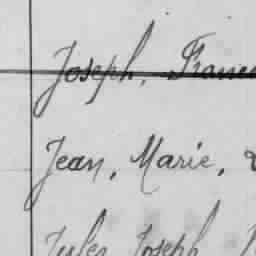 Joseph, Franc
Jean, Marie,
Jules Joseph